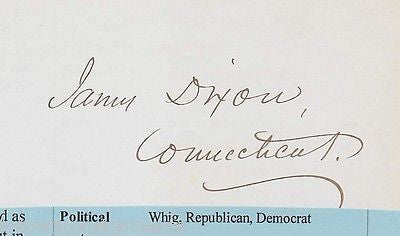 James Dixon,
Connecticut.
d as
Political
Whig, Republican, Democrat
st in